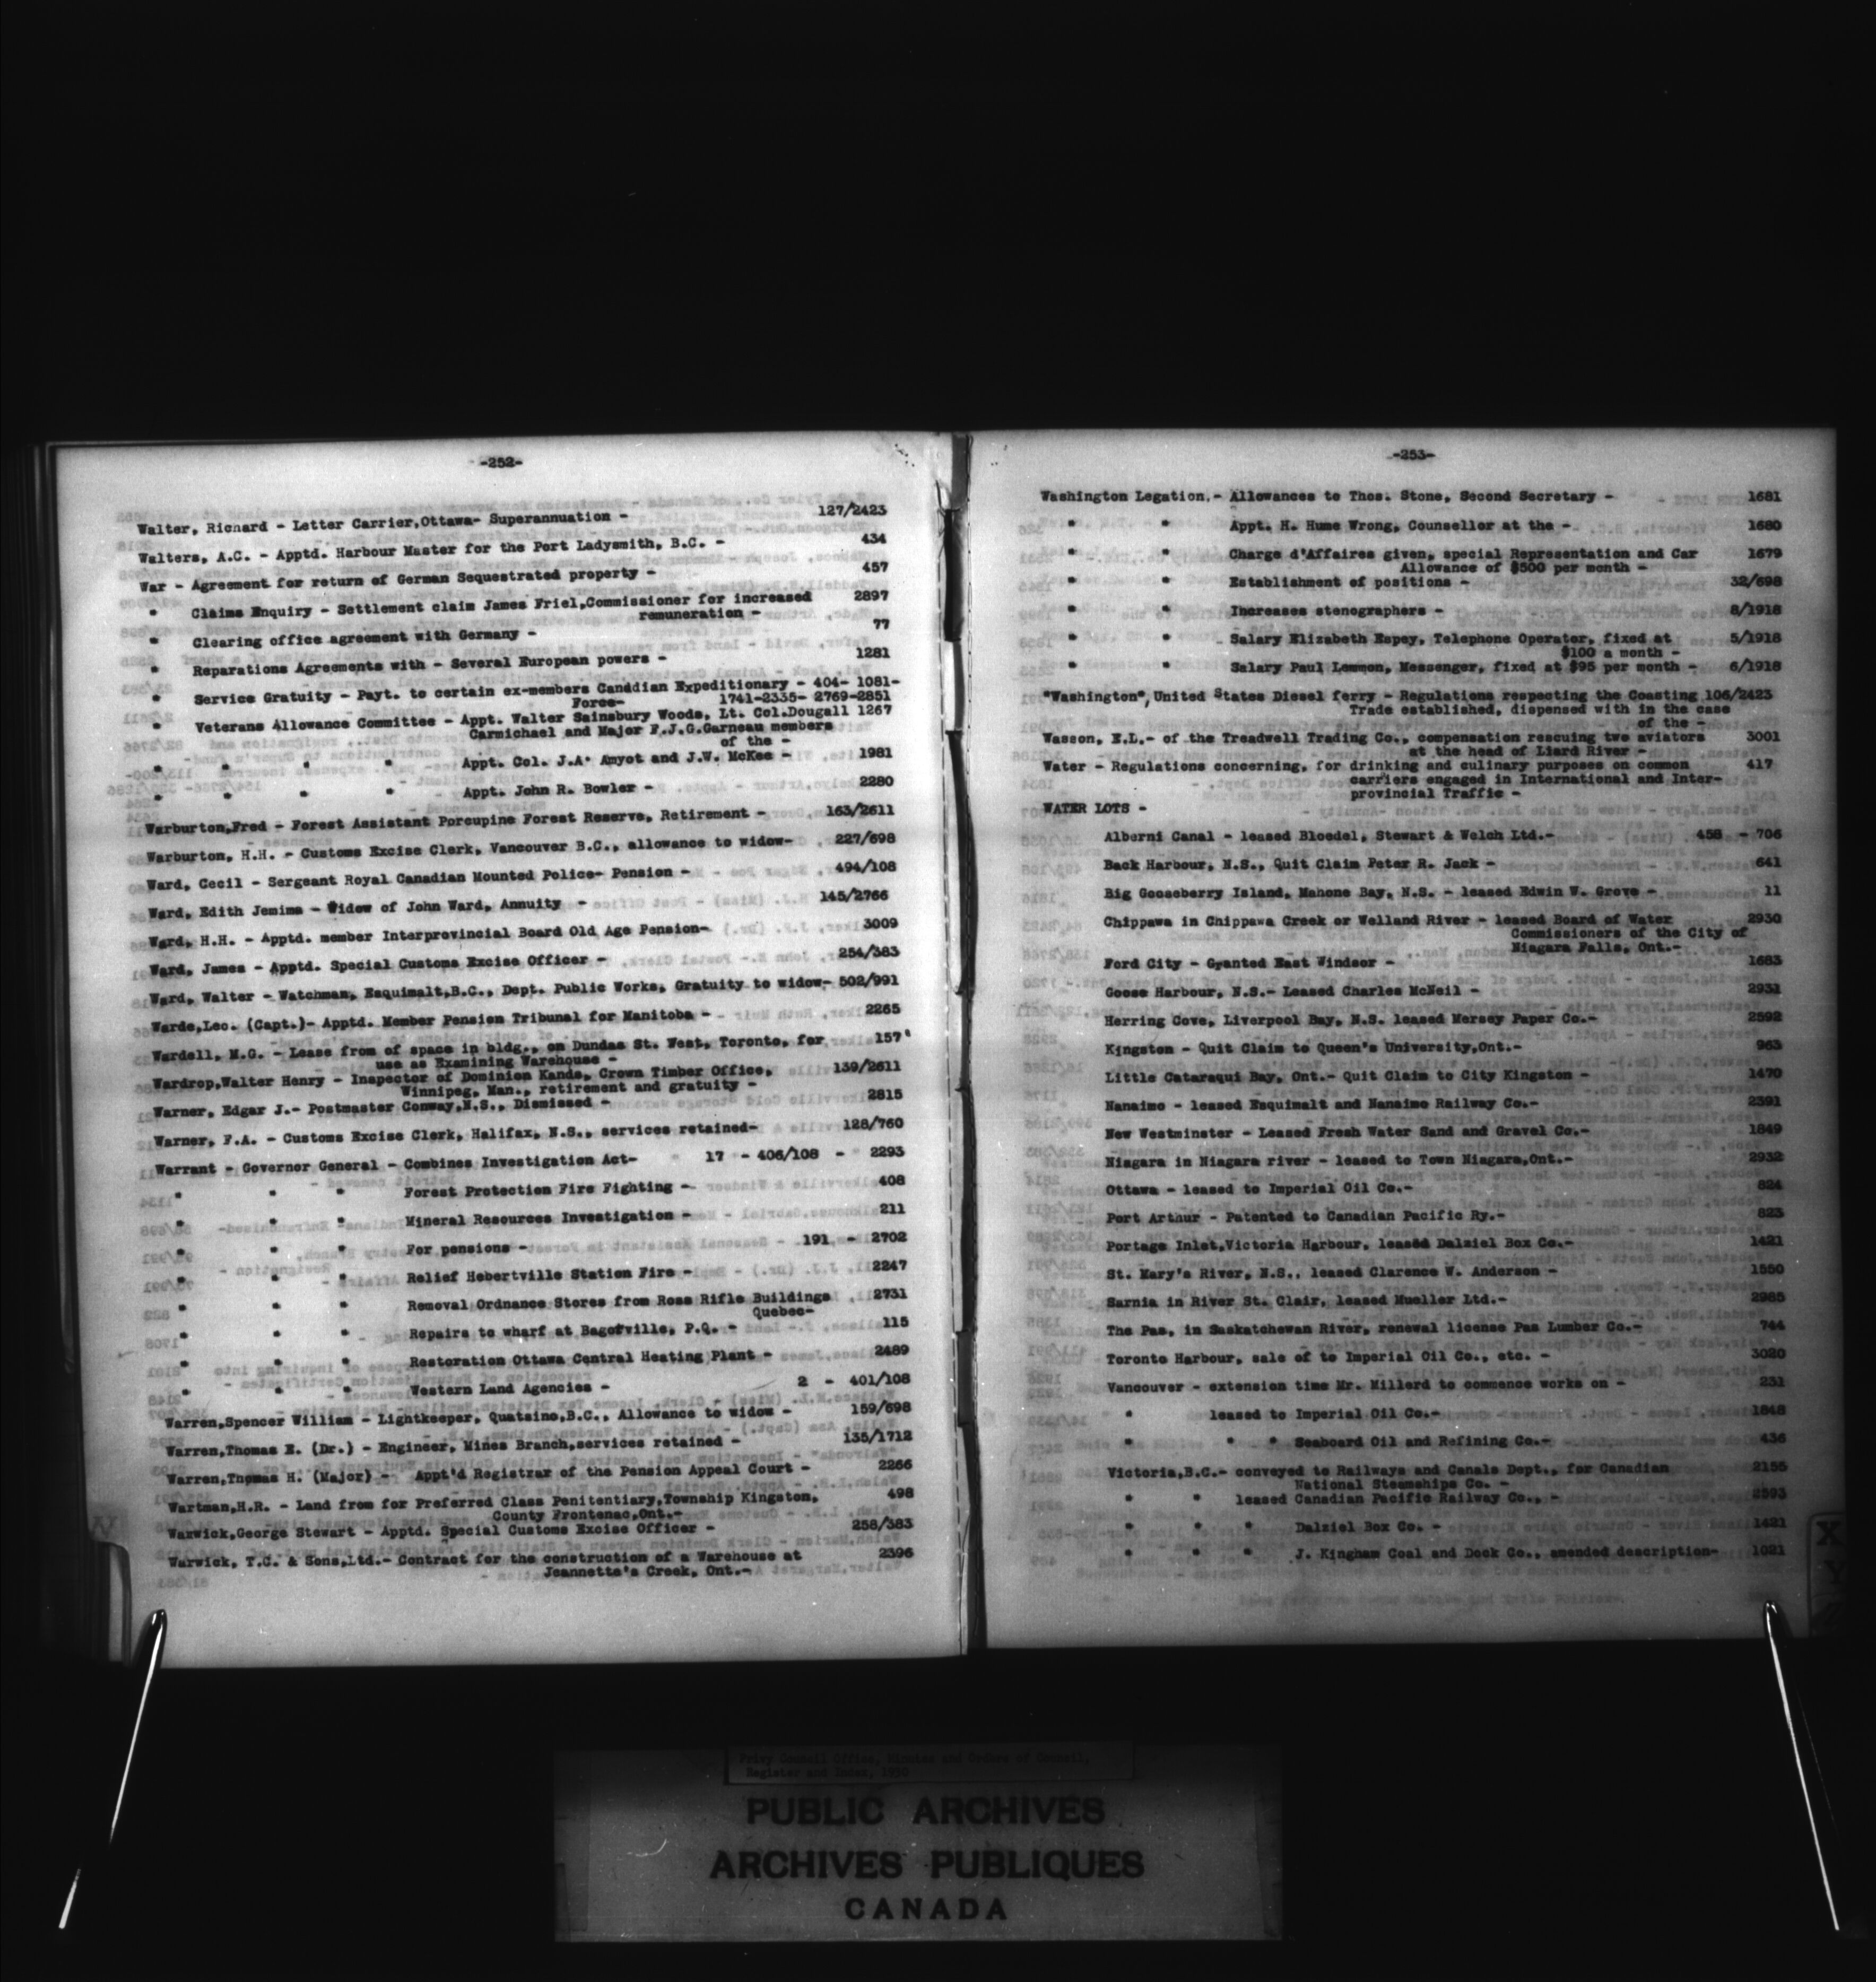 -252-
Walter, Richard - Letter Carrier,Ottawa- Superannuation - 127/2423
Walters, A.C. - Apptd. Harbour Master for the Port Ladysmith, B.C. - 434
War - Agreement for return of German Sequestrated property - 457
" Claims Enquiry - Settlement claim James Friel,Commissioner for increased 2897
remuneration -
" Clearing office agreement with Germany - 77
" Reparations Agreements with - Several European powers - 1281
" Service Gratuity - Payt. to certain ex-members Canadian Expeditionary - 404- 1081-
Force- 1741-2335- 2769-2851
" Veterans Allowance Committee - Appt. Walter Sainsbury Woods, Lt. Col.Dougall 1267
Carmichael and Major F.J.G.Garneau members
of the -
" " " " Appt. Col. J.A. Amyot and J.W. McKee - 1981
" " " " Appt. John R. Bowler - 2280
Warburton,Fred - Forest Assistant Porcupine Forest Reserve, Retirement - 163/2611
Warburton, H.H. - Customs Excise Clerk, Vancouver B.C., allowance to widow- 227/698
Ward, Cecil - Sergeant Royal Canadian Mounted Police- Pension - 494/108
Ward, Edith Jemima - Widow of John Ward, Annuity - 145/2766
Ward, H.H. - Apptd. member Interprovincial Board Old Age Pension- 3009
Ward, James - Apptd. Special Customs Excise Officer - 254/383
Ward, Walter - Watchman, Esquimalt,B.C., Dept. Public Works, Gratuity to widow- 502/991
Warde,Leo. (Capt.)- Apptd. Member Pension Tribunal for Manitoba - 2265
Wardell, M.G. - Lease from of space in bldg., on Dundas St. West, Toronto, for 157
use as Examining Warehouse -
Wardrop,Walter Henry - Inspector of Dominion Kands, Crown Timber Office, 139/2611
Winnipeg, Man., retirement and gratuity -
Warner, Edgar J.- Postmaster Conway,N.S., Dismissed - 2815
Warner, F.A. - Customs Excise Clerk, Halifax, N.S., services retained- 128/760
Warrant - Governor General - Combines Investigation Act- 17 - 406/108 - 2293
" " " Forest Protection Fire Fighting - 408
" " " Mineral Resources Investigation - 211
" " " For pensions - 191 - 2702
" " " Relief Hebertville Station Fire - 2247
" " " Removal Ordnance Stores from Ross Rifle Buildings 2731
Quebec-
" " " Repairs to wharf at Bagotville, P.Q. - 115
" " " Restoration Ottawa Central Heating Plant - 2489
" " " Western Land Agencies - 2 - 401/108
Warren,Spencer William - Lightkeeper, Quatsino,B.C., Allowance to widow - 159/698
Warren,Thomas E. (Dr.) - Engineer, Mines Branch,services retained - 135/1712
Warren,Thomas H. (Major) - Appt'd Registrar of the Pension Appeal Court - 2266
Wartman,H.R. - Land from for Preferred Class Penitentiary,Township Kingston, 498
County Frontenac,Ont.-
Warwick,George Stewart - Apptd. Special Customs Excise Officer - 258/383
Warwick, T.C. & Sons,Ltd.- Contract for the construction of a Warehouse at 2396
Jeannette's Creek, Ont.-
-253-
Washington Legation.- Allowances to Thos. Stone, Second Secretary - 1681
" " Appt. H. Hume Wrong, Counsellor at the - 1680
" " Charge d'Affaires given, special Representation and Car 1679
Allowance of $500 per month -
" " Establishment of positions - 32/698
" " Increases stenographers - 8/1918
" " Salary Elizabeth Espey, Telephone Operator, fixed at 5/1918
$100 a month -
" " Salary Paul Lemmon, Messenger, fixed at $95 per month - 6/1918
"Washington",United States Diesel ferry - Regulations respecting the Coasting 106/2423
Trade established, dispensed with in the case
of the -
Wasson, E.L.- of the Treadwell Trading Co., compensation rescuing two aviators 3001
at the head of Liard River -
Water - Regulations concerning, for drinking and culinary purposes on common 417
carriers engaged in International and Inter-
provincial Traffic -
WATER LOTS -
Alberni Canal - leased Bloedel, Stewart & Welch Ltd.- 458 - 706
Back Harbour, N.S., Quit Claim Peter R. Jack - 641
Big Gooseberry Island, Mahone Bay, N.S. - leased Edwin W. Grove - 11
Chippawa in Chippawa Creek or Welland River - leased Board of Water 2930
Commissioners of the City of
Niagara Falls, Ont.-
Ford City - Granted East Windsor - 1683
Goose Harbour, N.S.- Leased Charles McNeil - 2931
Herring Cove, Liverpool Bay, N.S. leased Mersey Paper Co.- 2592
Kingston - Quit Claim to Queen's University,Ont.- 963
Little Cataraqui Bay, Ont.- Quit Claim to City Kingston - 1470
Nanaimo - leased Esquimalt and Nanaimo Railway Co.- 2391
New Westminster - Leased Fresh Water Sand and Gravel Co.- 1849
Niagara in Niagara river - leased to Town Niagara,Ont.- 2932
Ottawa - leased to Imperial Oil Co.- 824
Port Arthur - Patented to Canadian Pacific Ry.- 823
Portage Inlet,Victoria Harbour, leased Dalziel Box Co.- 1421
St. Mary's River, N.S., leased Clarence W. Anderson - 1550
Sarnia in River St. Clair, leased Mueller Ltd.- 2985
The Pas, in Saskatchewan River, renewal license Pas Lumber Co.- 744
Toronto Harbour, sale of to Imperial Oil Co., etc. - 3020
Vancouver - extension time Mr. Millerd to commence works on - 231
" leased to Imperial Oil Co.- 1848
" " " Seaboard Oil and Refining Co.- 436
Victoria,B.C.- conveyed to Railways and Canals Dept., for Canadian 2155
National Steamships Co. -
" " leased Canadian Pacific Railway Co., - 2593
" " " Dalziel Box Co. - 1421
" " " J. Kingham Coal and Dock Co., amended description- 1021
X
Y
Privy Council Office, Minutes and Orders of Council,
Register and Index, 1930
PUBLIC ARCHIVES
ARCHIVES PUBLIQUES
CANADA